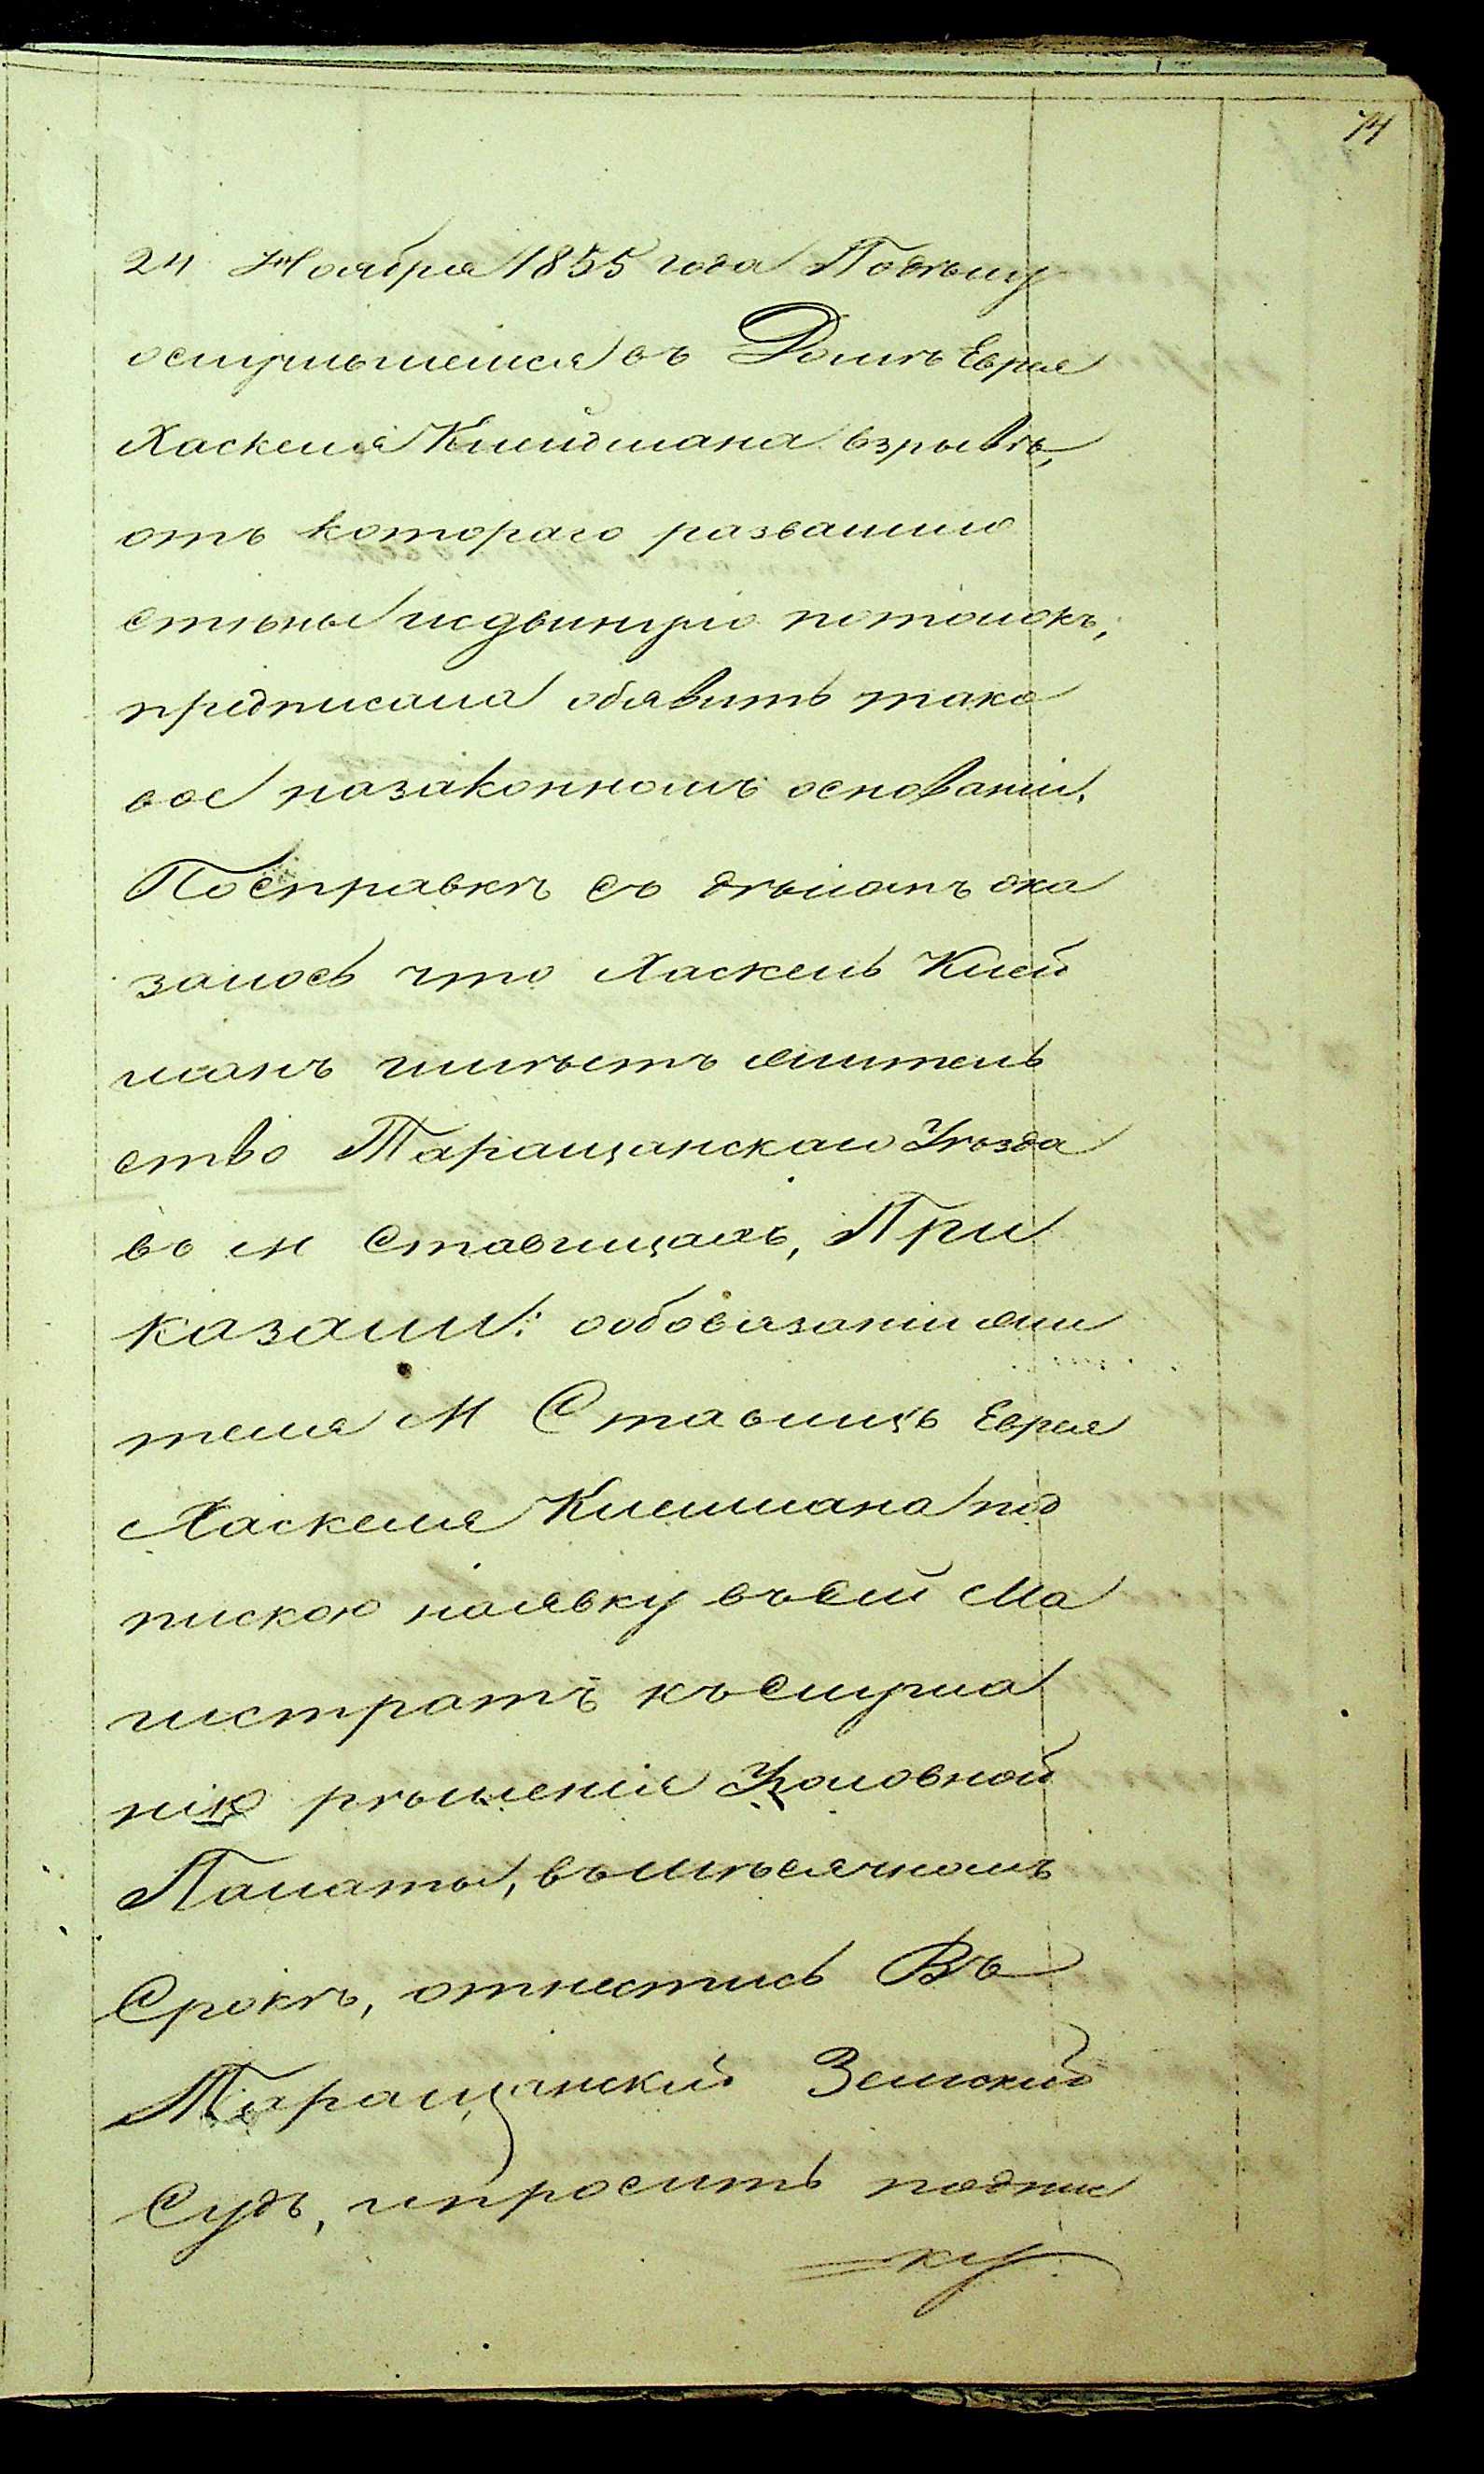 74
24 Ноября 1855 года Подѣлу
ослучившемся въ Домѣ Еврея
Хаскеля Клейдмана взрывѣ,
отъ котораго развалило
стѣны исдвинуло потолокъ,
предписала обявить тако
вое назаконномъ основаніи.
Посправкѣ съ дѣломъ ока
залось что Хаскель Клей
манъ имѣетъ жытель
ство Таращанскаго Уѣзда
въ м Ставищахъ, При
казали: ообовязаніи жи
теля М Ставищъ Еврея
Хаскеля Клеймана под
пискою наявку въсей Ма
гистратъ къслуша
нію рѣшенія Уголовной
Палаты, вьмѣсячномъ
Срокѣ, отнестись Въ
Таращанскій Земскій
Судъ, ипросить подпис
ку